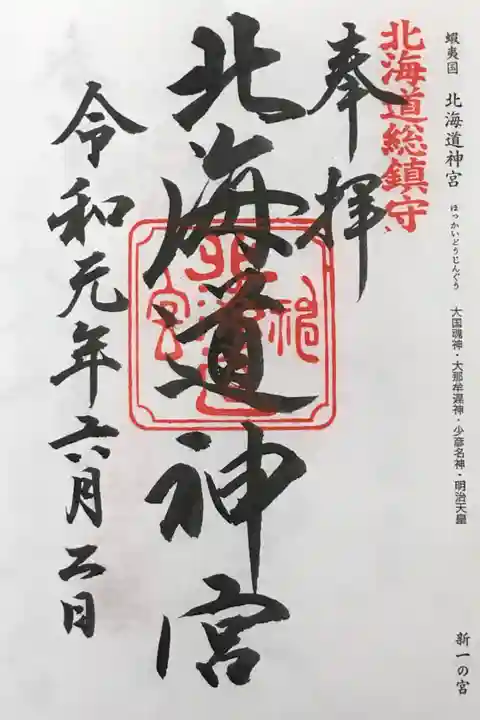 蝦夷国 北海道神宮 ほっかいどうじんぐう 大国魂神・大那牟遅神・少彦名神・明治天皇 新一の宮
北海道総鎮守
奉拝
北海道神宮
令和元年六月二日